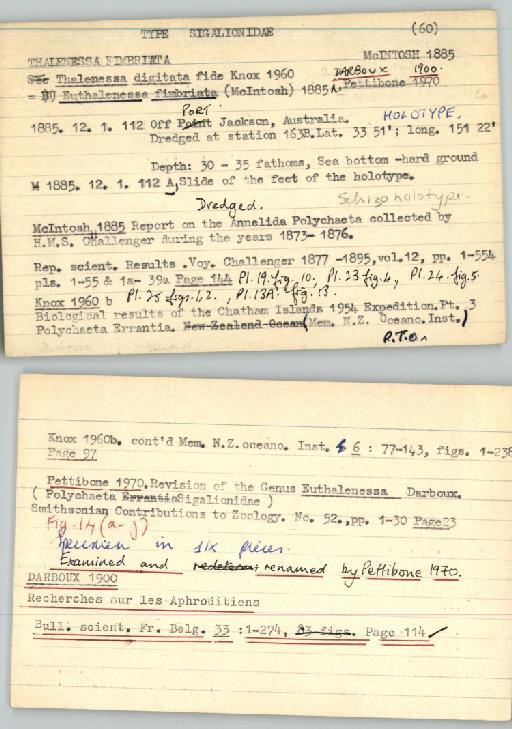 TYPE SIGALIONIDAE (60)
THALENESSA FIMBRIATA McINTOSH 1885
See Thalenessa digitata fide Knox 1960 DARBOUX 1900.
= Euthalenessa fimbriata (McIntosh) 1885 Pettibone 1970
PORT
1885. 12. 1. 112 Off Point Jackson, Australia. HOLOTYPE.
Dredged at station 163B.Lat. 33 51'; long. 151 22'
Depth: 30 - 35 fathoms, Sea bottom -hard ground
1885. 12. 1. 112 A, Slide of the feet of the holotype.
Dredged. Schizoholotype.
McIntosh 1885 Report on the Annelida Polychaeta collected by
H.M.S. CHallenger during the years 1873- 1876.
Rep. scient. Results ,Voy. Challenger 1877 -1895,vol.12, pp. 1-554
pls. 1-55 & 1a- 39a Page 144 Pl.19.fig.10. Pl.23 fig.4, Pl.24.fig.5.
Knox 1960 b Pl.25.figs.1,2. , Pl.13A. fig.13.
Biological results of the Chatham Islands 1954 Expedition.Pt. 3
Polychaeta Errantia. New Zealand Ocean (Mem. N.Z. Oceano. Inst.)
P.T.O.
Knox 1960b. cont'd Mem. N.Z.oceano. Inst. 6 : 77-143, figs. 1-238
Page 97
Pettibone 1970.Revision of the Genus Euthalenessa Darboux.
( Polychaeta Errantia Sigalionidae )
Smithsonian Contributions to Zoology. No. 52.,pp. 1-30 Page23
Fig.14 (a-j)
Specimen in six pieces.
Examined and renamed by Pettibone 1970.
DARBOUX 1900
Recherches sur les Aphroditiens
Bull. scient. Fr. Belg. 33 :1-274, 83 figs. Page 114